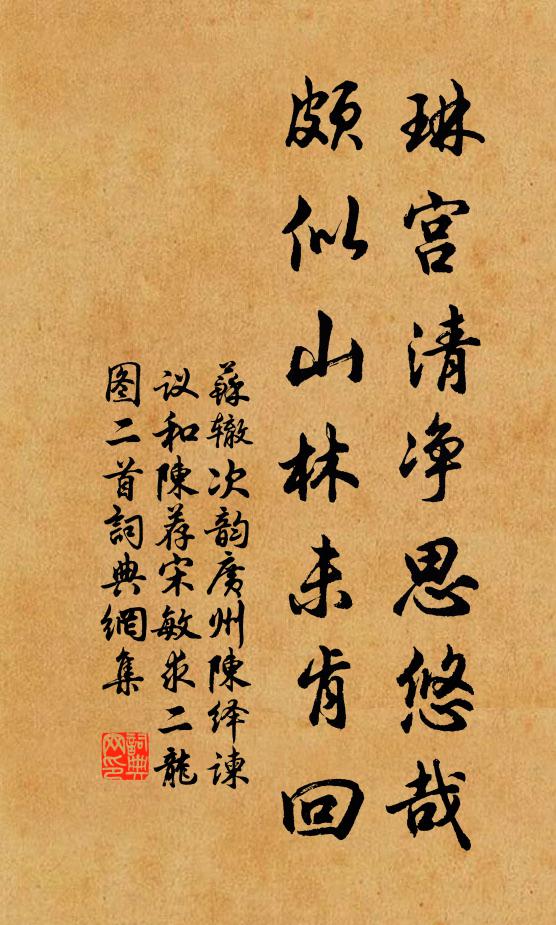 琳宫清净思悠哉
颇似山林未肯回
蘇辙次韵廣州陳绎谏
议和陳荐宋敏求二龍
图二首詞典網集
詞典网印